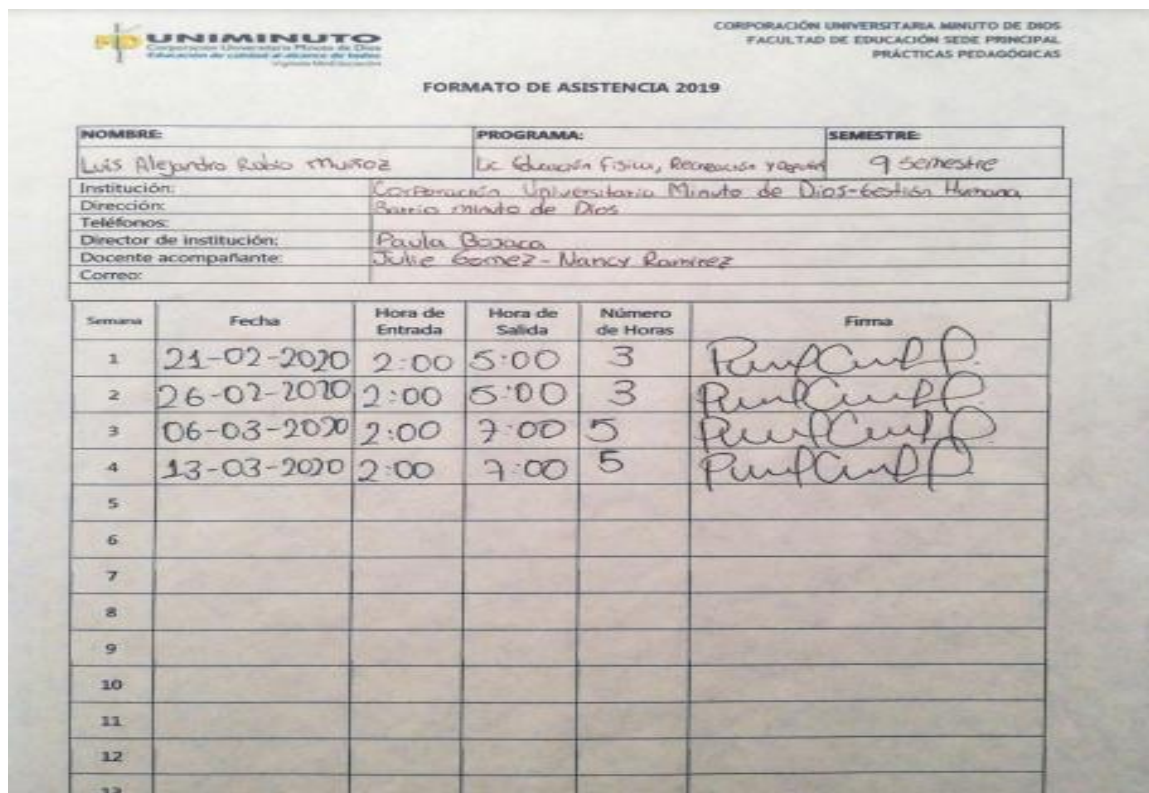 UNIMINUTO
Corporación Universitaria Minuto de Dios
Educación de calidad al alcance de todos
Vigilada MinEducación
CORPORACIÓN UNIVERSITARIA MINUTO DE DIOS
FACULTAD DE EDUCACIÓN SEDE PRINCIPAL
PRÁCTICAS PEDAGÓGICAS
FORMATO DE ASISTENCIA 2019
NOMBRE: PROGRAMA: SEMESTRE:
Luis Alejandro Rubio Muñoz Lic Educación Física, Recreación y 9 semestre
Institución: Corporación Universitaria Minuto de Dios-Gestión Humana
Dirección: Barrio minuto de Dios
Teléfonos:
Director de institución: Paula
Docente acompañante: Julie Gomez - Nancy Ramirez
Correo:
Semana Fecha Hora de Entrada Hora de Salida Número de Horas Firma
1 21-02-2020 2:00 5:00 3
2 26-02-2020 2:00 5:00 3
3 06-03-2020 2:00 7:00 5
4 13-03-2020 2:00 7:00 5
5
6
7
8
9
10
11
12
13